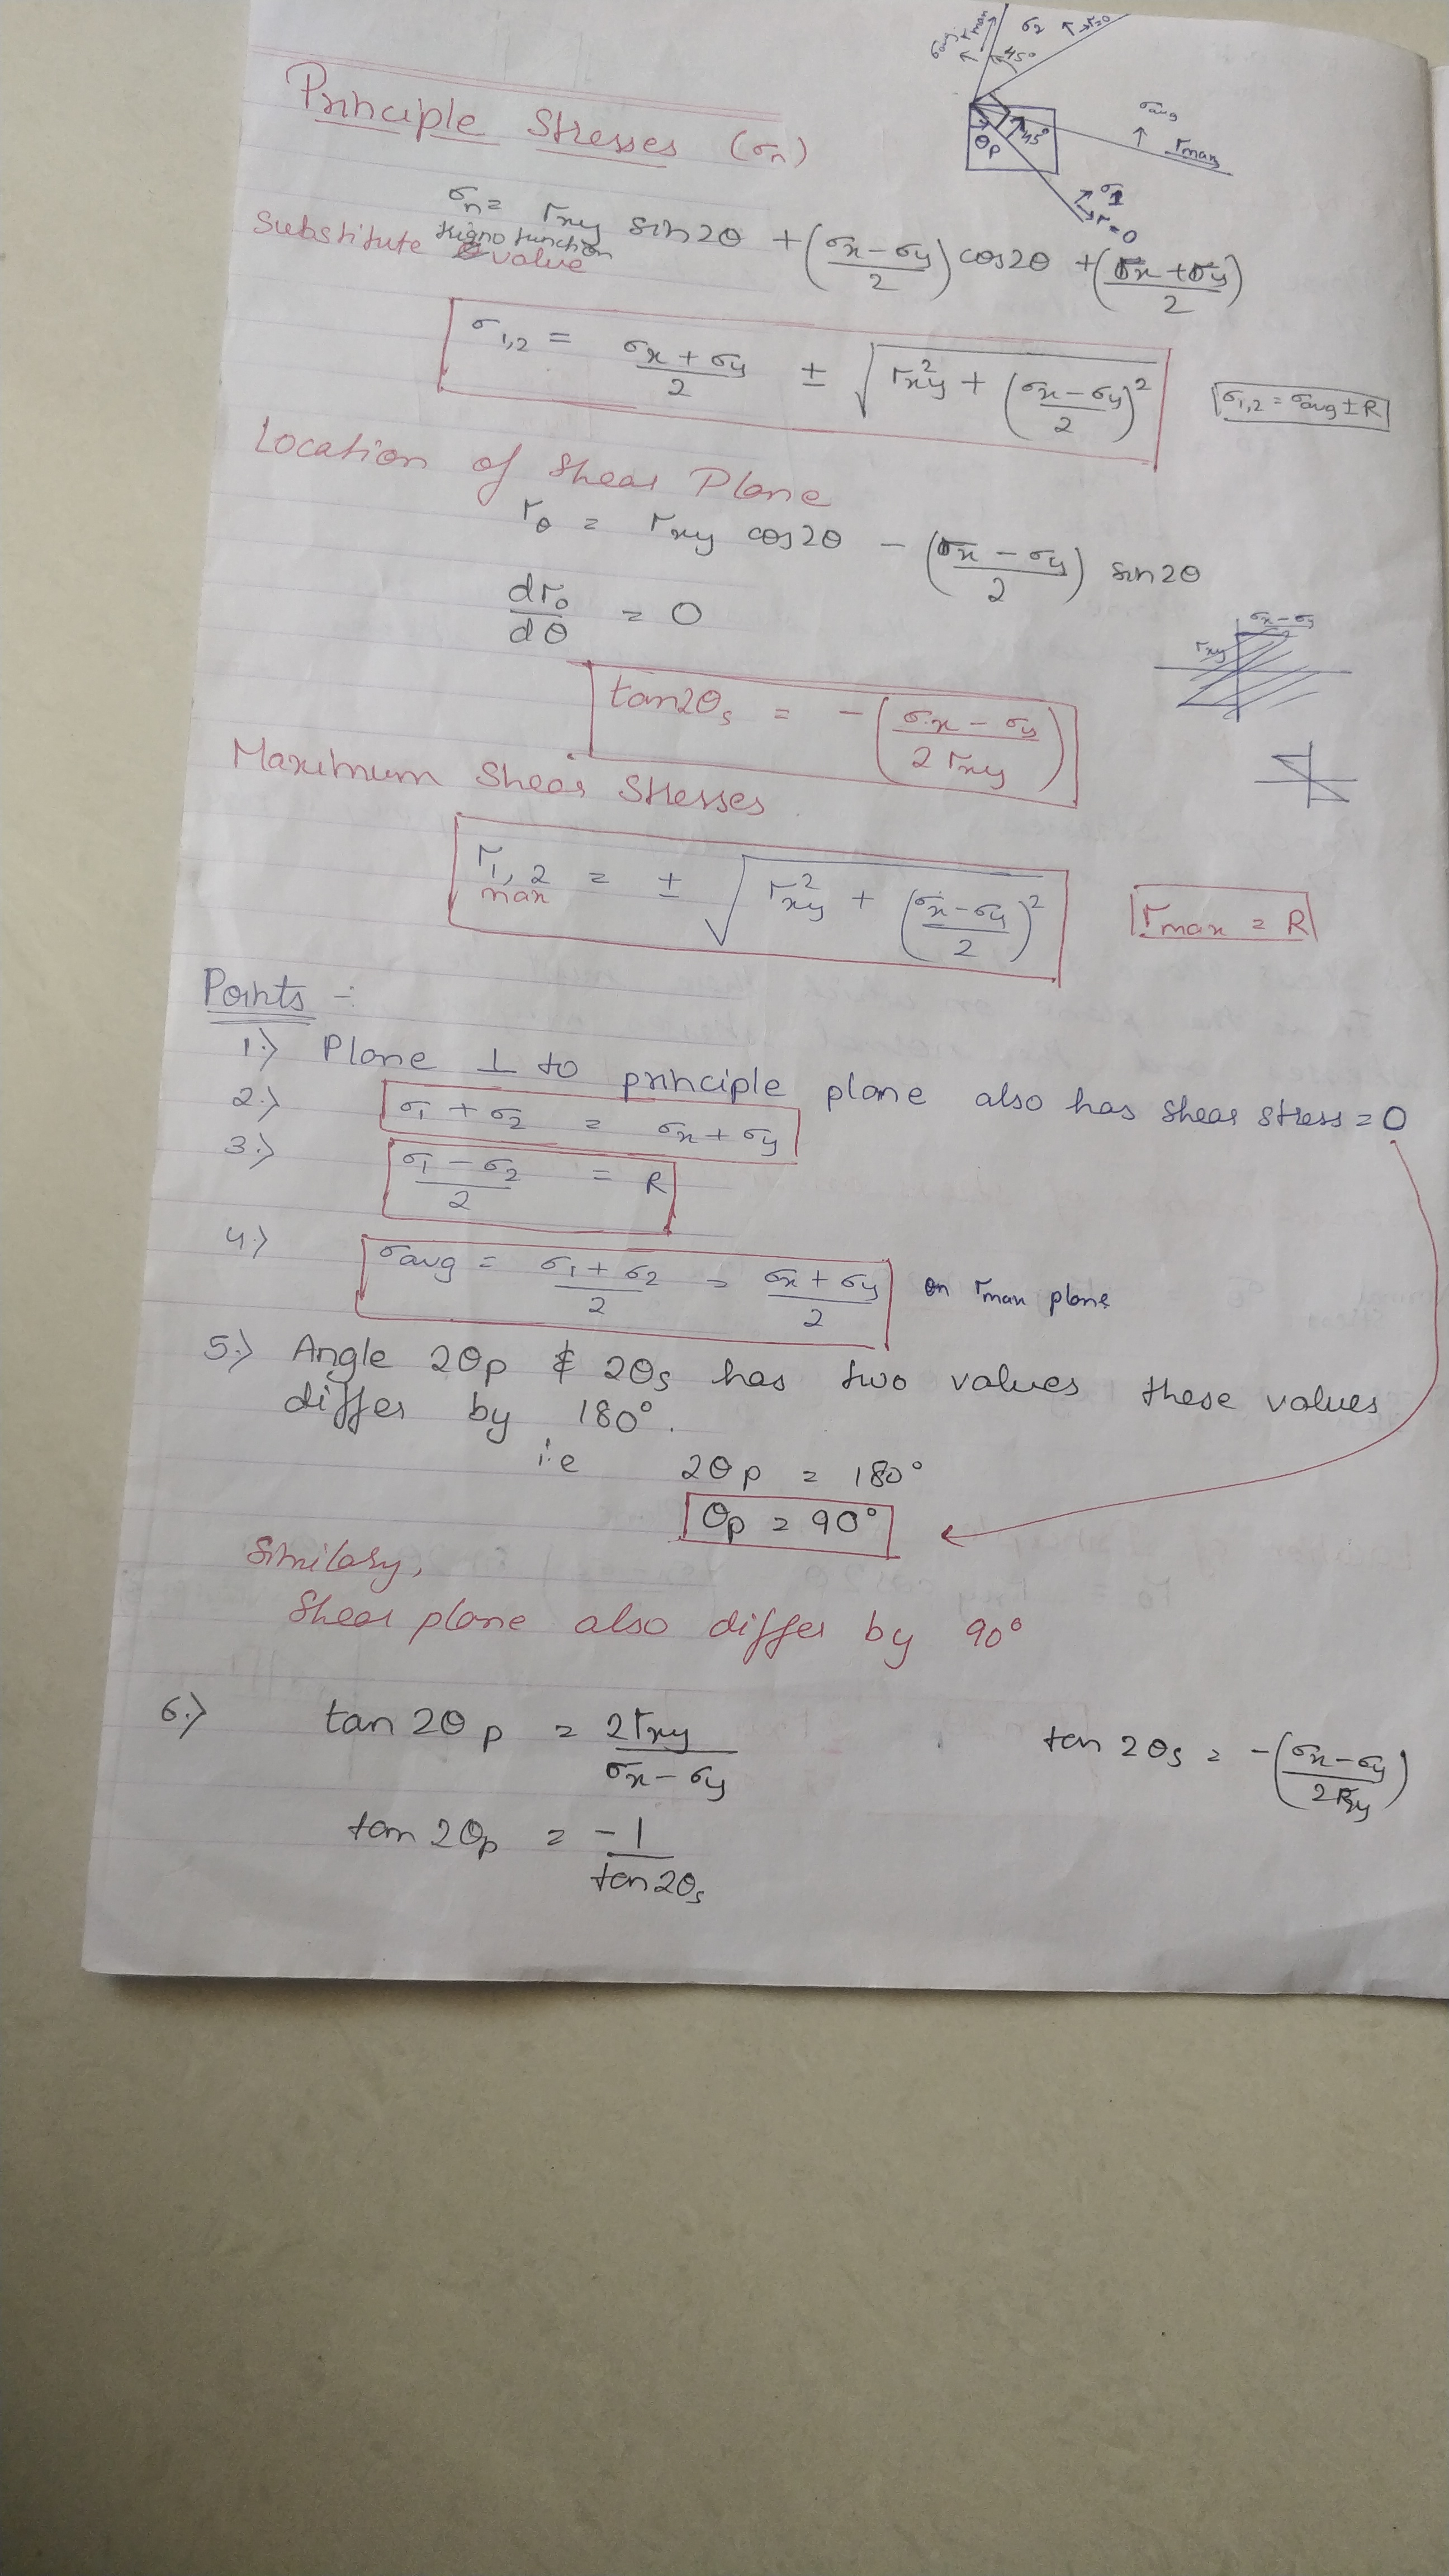 σavg τmax σ2 τ=0
45°
Principle Stresses (σn)
θp 45° σavg τmax
σ1 τ=0
σn = τxy sin2θ + (σx-σy/2) cos2θ + (σx+σy/2)
Substitute trigno function value
σ1,2 = σx + σy/2 ± √τxy² + (σx-σy/2)²
σ1,2 = σavg ± R
Location of Shear Plane
τθ = τxy cos2θ - (σx - σy/2) sin2θ
dτθ/dθ = 0
σx-σy
τxy
tan2θs = - (σx - σy/2τxy)
Maximum Shear Stresses
τ1,2 max = ± √τxy² + (σx-σy/2)²
τmax = R
Points :-
1.) Plane ⊥ to principle plane also has shear stress = 0
2.) σ1 + σ2 = σx + σy
3.) σ1 - σ2/2 = R
4.) σavg = σ1 + σ2/2 = σx + σy/2 on τmax plane
5.) Angle 2θp & 2θs has two values these values
differ by 180°.
i.e 2θp = 180°
θp = 90°
Similary,
Shear plane also differ by 90°
6.) tan 2θp = 2τxy/σx - σy tan 2θs = -(σx - σy/2τxy)
tan 2θp = -1/tan2θs